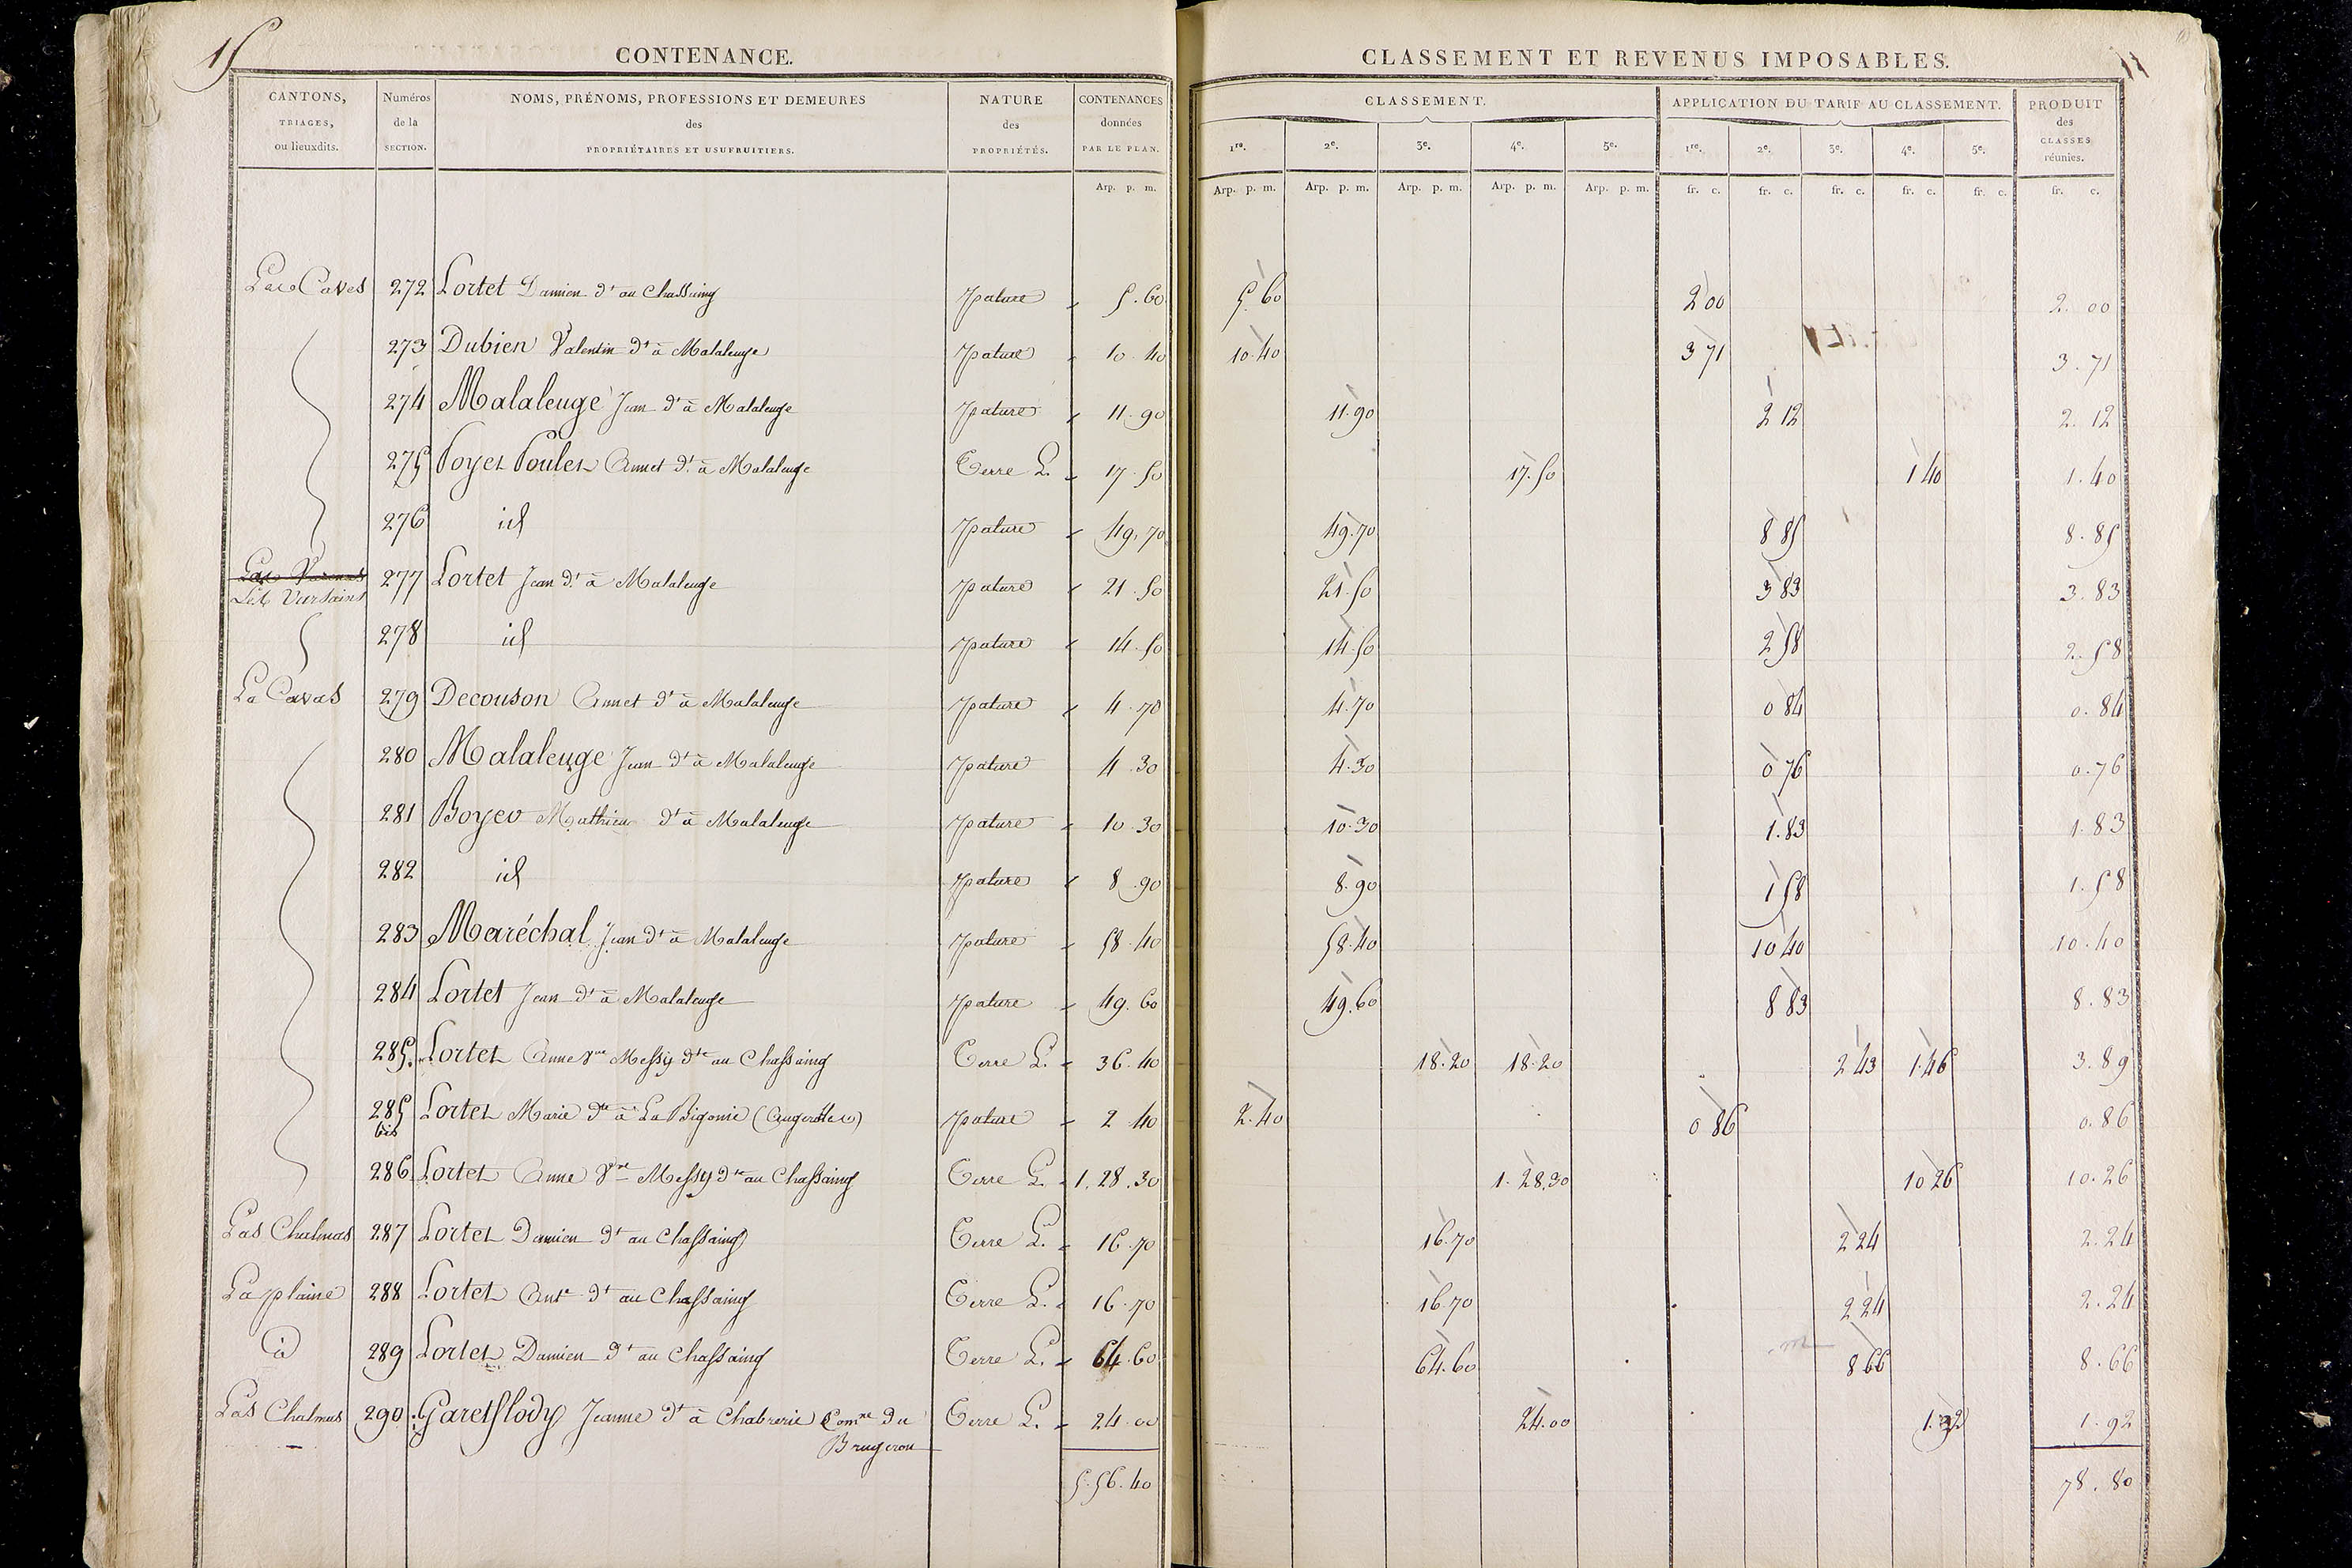 15
CONTENANCE.
CANTONS, TRIAGES, ou lieuxdits.
Numéros de la SECTION.
NOMS, PRÉNOMS, PROFESSIONS ET DEMEURES des PROPRIÉTAIRES ET USUFRUITIERS.
NATURE des PROPRIÉTÉS.
CONTENANCES données PAR LE PLAN.
Arp. p. m.
CLASSEMENT ET REVENUS IMPOSABLES.
CLASSEMENT.
APPLICATION DU TARIF AU CLASSEMENT.
PRODUIT des CLASSES réunies.
1re. 2e. 3e. 4e. 5e. 1re. 2e. 3e. 4e. 5e.
Arp. p. m. Arp. p. m. Arp. p. m. Arp. p. m. Arp. p. m. fr. c. fr. c. fr. c. fr. c. fr. c. fr. c.
Las Caves 272 Lortet Damien dt au Chassaing pature 5.60 5.60 2 00 2.00
273 Dubien Valentin dt à Malaleuge pature 10.40 10.40 3 71 3.71
274 Malaleuge Jean dt à Malaleuge pature 11.90 11.90 2 12 2.12
275 Poyet Poulet Annet dt à Malaleuge Terre L. 17.50 17.50 1 40 1.40
276 id pature 49.70 49.70 8 85 8.85
277 Lortet Jean dt à Malaleuge pature 21.50 21.50 3 83 3.83
278 id pature 14.50 14.50 2 58 2.58
La Cavas 279 Decouson Annet dt à Malaleuge pature 4.70 4.70 0 84 0.84
280 Malaleuge Jean dt à Malaleuge pature 4.30 4.30 0 76 0.76
281 Boyer Mathieu dt à Malaleuge pature 10.30 10.30 1.83 1.83
282 id pature 8.90 8.90 1 58 1.58
283 Maréchal Jean dt à Malaleuge pature 58.40 58.40 10 40 10.40
284 Lortet Jean dt à Malaleuge pature 49.60 49.60 8 83 8.83
285. Lortet Anne vve Messy dte au Chassaing Terre L. 36.40 18.20 18.20 2 43 1.46 3.89
285 bis Lortet Marie dte à La Bigonie pature 2.40 2.40 0 86 0.86
286 Lortet Anne Vve Messy dte au Chassaing Terre L. 1.28.30 1.28.30 10 26 10.26
Las Chalmas 287 Lortet Damien dt au Chassaing Terre L. 16.70 16.70 2 24 2.24
La plaine 288 Lortet Ante dt au Chassaing Terre L. 16.70 16.70 2 24 2.24
289 Lortet Damien dt au Chassaing Terre L. 64.60 64.60 8 66 8.66
Las Chalmas 290 Jeanne dt à Chabrerie Comne du Terre L. 24.00 24.00 1.92 1.92
Brugeron
5.56.40 78.80